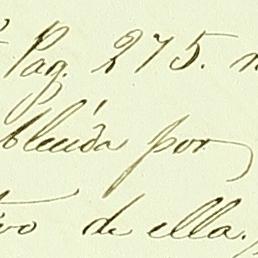 Pag. 275.
blecida por
de ella.